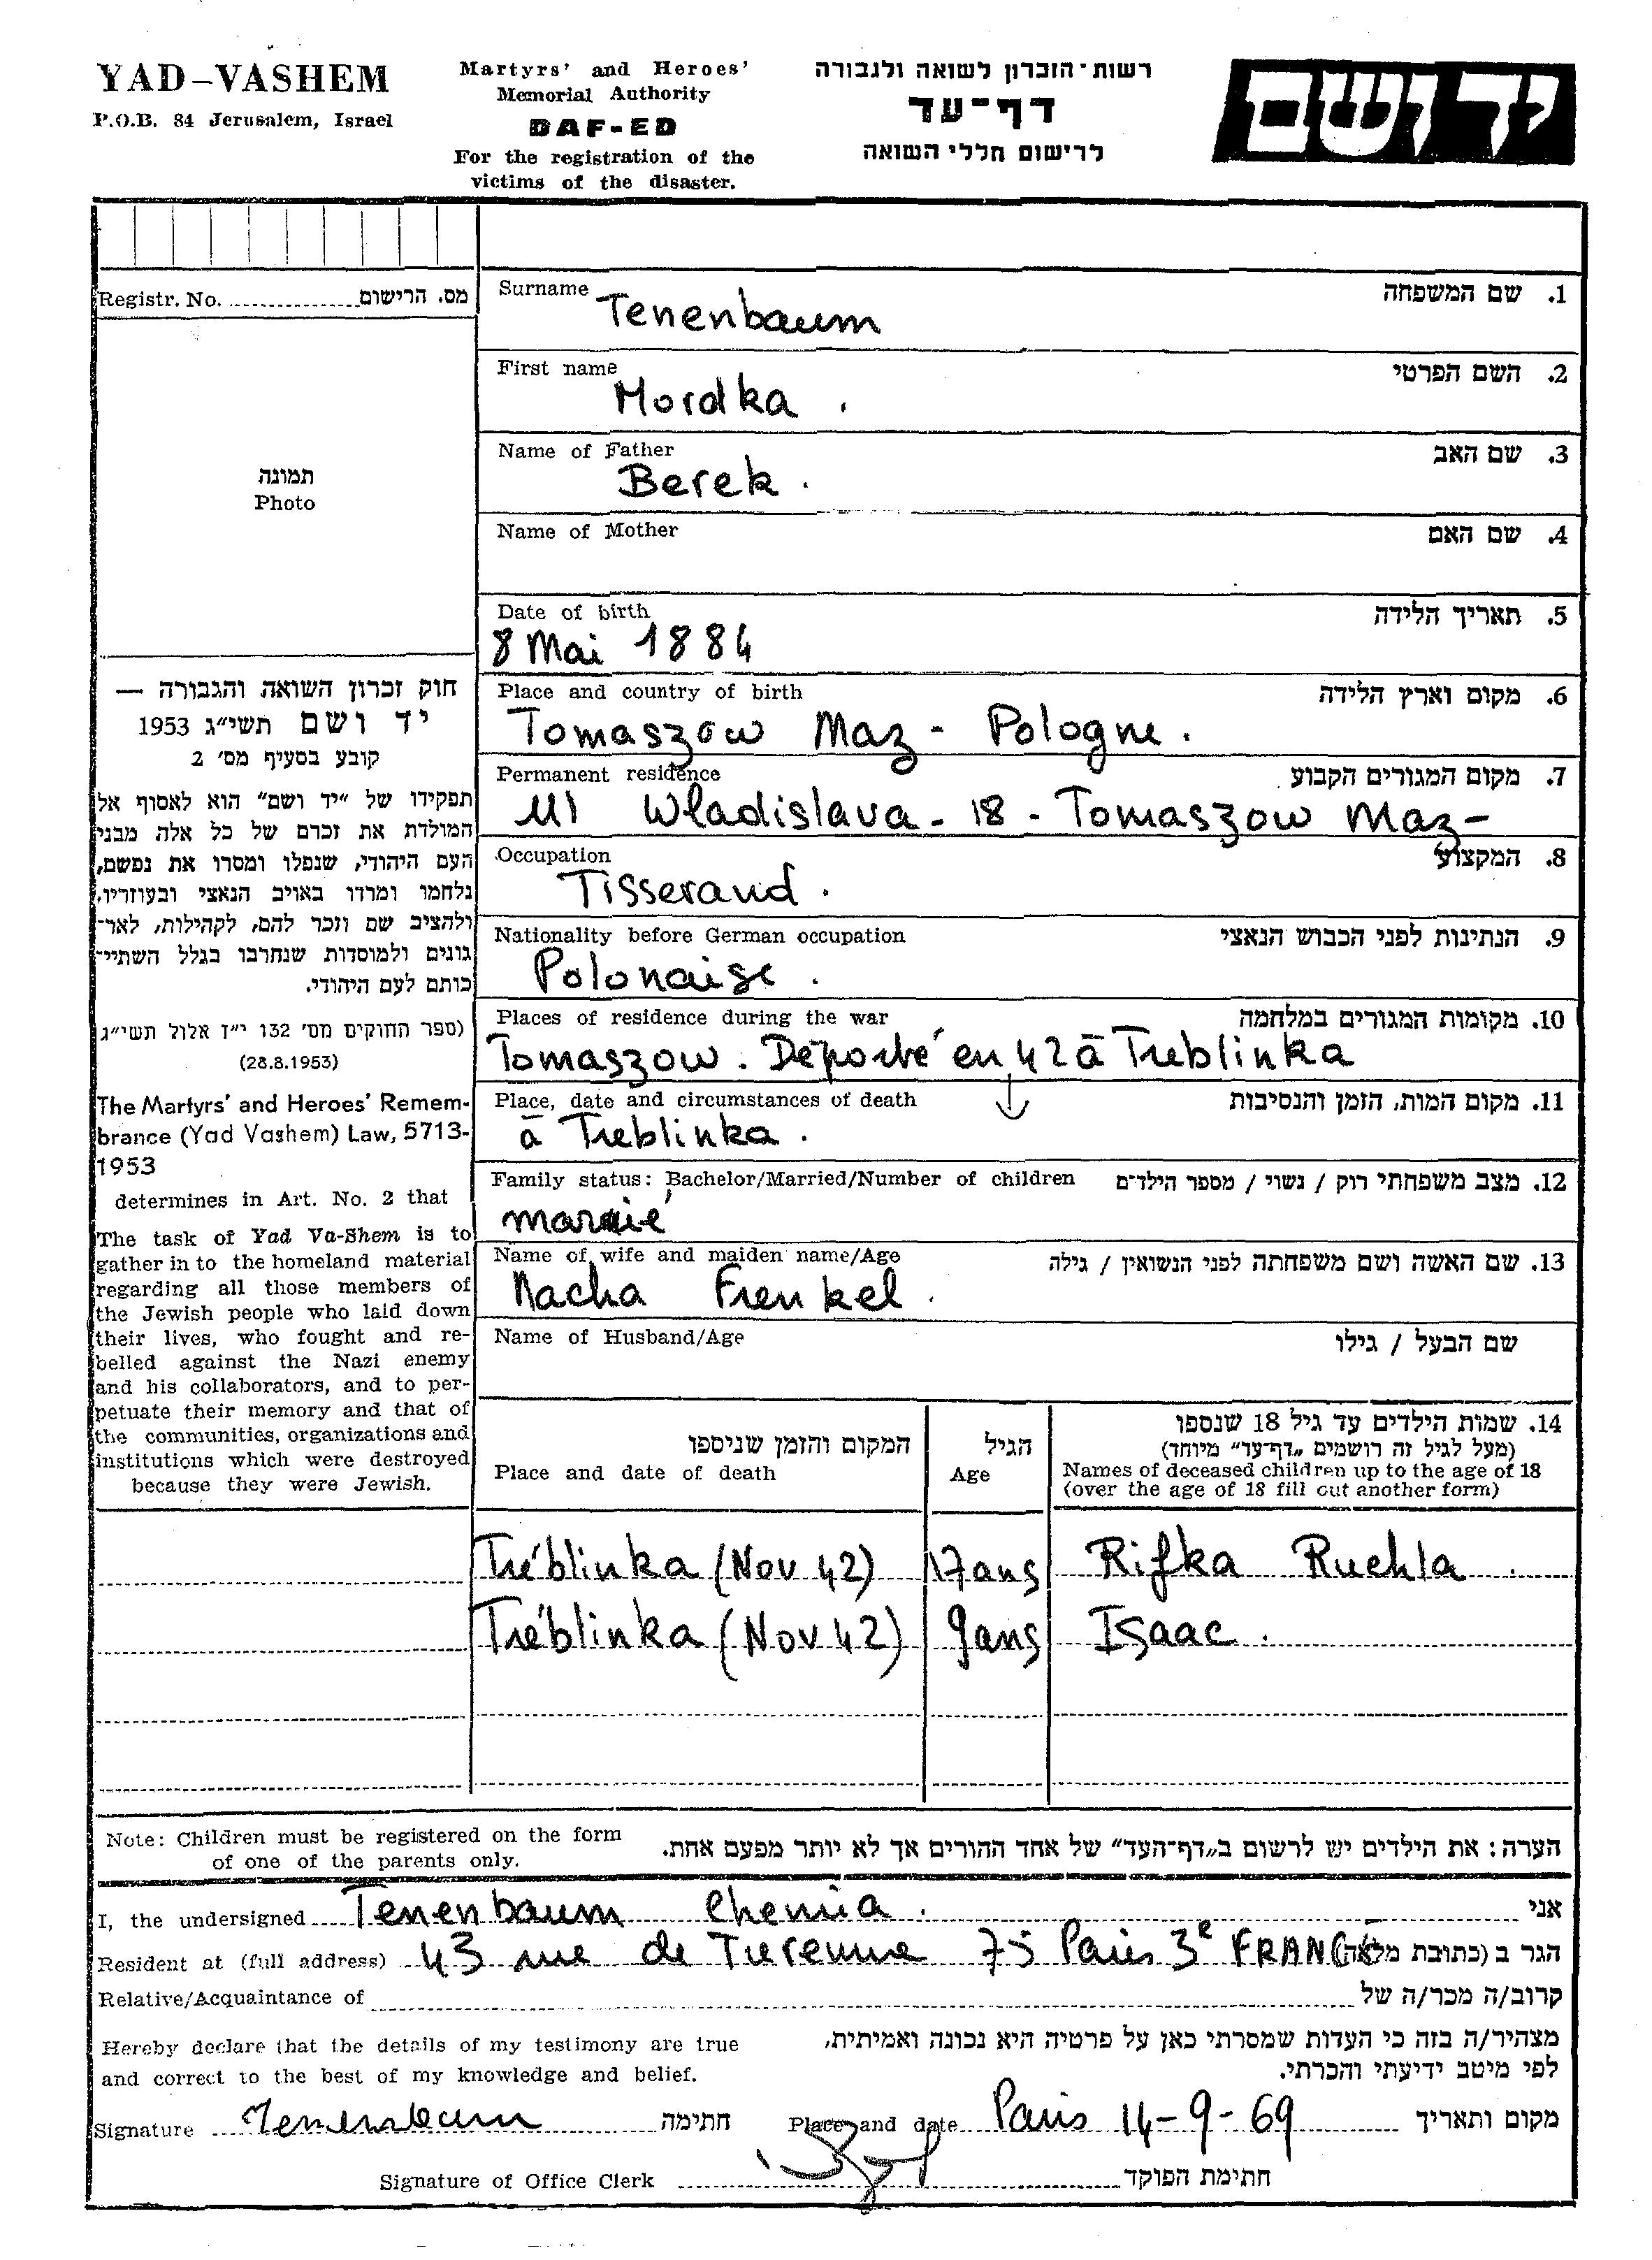 YAD-VASHEM
P.O.B. 84 Jerusalem, Israel
Martyrs' and Heroes'
Memorial Authority
DAF-ED
For the registration of the
victims of the disaster.
רשות־הזכרון לשואה ולגבורה
דף־עד
לרישום חללי השואה
יד ושם
Registr. No. מס. הרישום
תמונה
Photo
חוק זכרון השואה והגבורה —
יד ושם תשי״ג 1953
קובע בסעיף מס׳ 2
תפקידו של ״יד ושם״ הוא לאסוף אל
המולדת את זכרם של כל אלה מבני
העם היהודי, שנפלו ומסרו את נפשם,
נלחמו ומרדו באויב הנאצי ובעוזריו,
ולהציב שם וזכר להם, לקהילות, לאר־
גונים ולמוסדות שנחרבו בגלל השתיי־
כותם לעם היהודי.
(ספר החוקים מס׳ 132 י״ז אלול תשי״ג
(28.8.1953)
The Martyrs' and Heroes' Remem-
brance (Yad Vashem) Law, 5713-
1953
determines in Art. No. 2 that
The task of Yad Va-Shem is to
gather in to the homeland material
regarding all those members of
the Jewish people who laid down
their lives, who fought and re-
belled against the Nazi enemy
and his collaborators, and to per-
petuate their memory and that of
the communities, organizations and
institutions which were destroyed
because they were Jewish.
Surname 1. שם המשפחה
Tenenbaum
First name 2. השם הפרטי
Mordka .
Name of Father 3. שם האב
Berek .
Name of Mother 4. שם האם
Date of birth 5. תאריך הלידה
8 Mai 1884
Place and country of birth 6. מקום וארץ הלידה
Tomaszow Maz - Pologne .
Permanent residence 7. מקום המגורים הקבוע
Ul Wladislava - 18 - Tomaszow Maz -
Occupation 8. המקצוע
Tisserand .
Nationality before German occupation 9. הנתינות לפני הכבוש הנאצי
Polonaise .
Places of residence during the war 10. מקומות המגורים במלחמה
Tomaszow . Déporté en 42 à Treblinka
Place, date and circumstances of death 11. מקום המות, הזמן והנסיבות
à Treblinka .
Family status: Bachelor/Married/Number of children 12. מצב משפחתי רוק / נשוי / מספר הילדים
marié
Name of wife and maiden name/Age 13. שם האשה ושם משפחתה לפני הנשואין / גילה
Macha Frenkel .
Name of Husband/Age שם הבעל / גילו
המקום והזמן שניספו
Place and date of death
הגיל
Age
14. שמות הילדים עד גיל 18 שנספו
(מעל לגיל זה רושמים „דף־עד״ מיוחד)
Names of deceased children up to the age of 18
(over the age of 18 fill out another form)
Tréblinka (Nov 42) 17 ans Rifka Ruchla .
Tréblinka (Nov 42) 9 ans Isaac .
Note: Children must be registered on the form
of one of the parents only.
הערה: את הילדים יש לרשום ב„דף־העד״ של אחד ההורים אך לא יותר מפעם אחת.
I, the undersigned Tenenbaum Chemia . אני
Resident at (full address) 43 rue de Turenne 75 Paris 3e FRANCE הגר ב (כתובת מלאה)
Relative/Acquaintance of קרוב/ה מכר/ה של
Hereby declare that the details of my testimony are true
and correct to the best of my knowledge and belief.
מצהיר/ה בזה כי העדות שמסרתי כאן על פרטיה היא נכונה ואמיתית,
לפי מיטב ידיעתי והכרתי.
Signature Tenenbaum חתימה Place and date Paris 14-9-69 מקום ותאריך
Signature of Office Clerk חתימת הפוקד